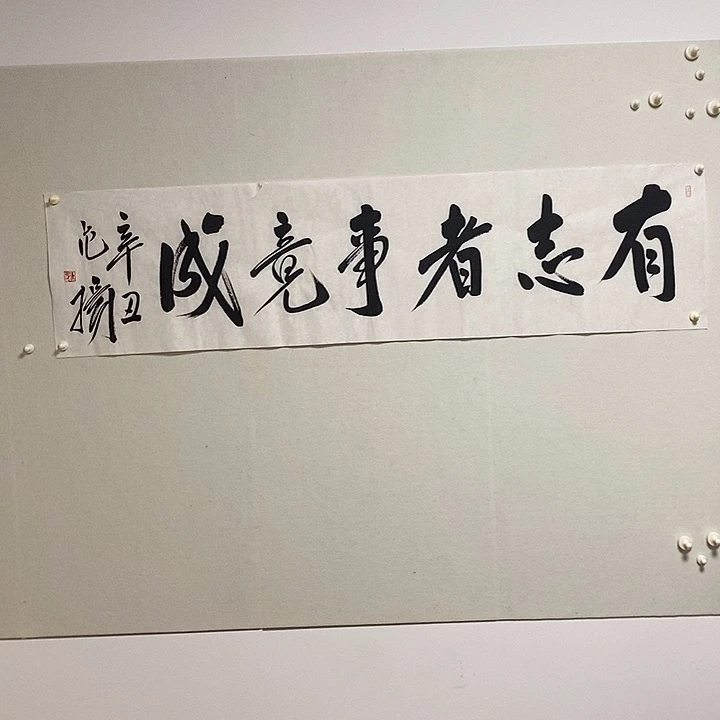 有志者事竟成
辛丑